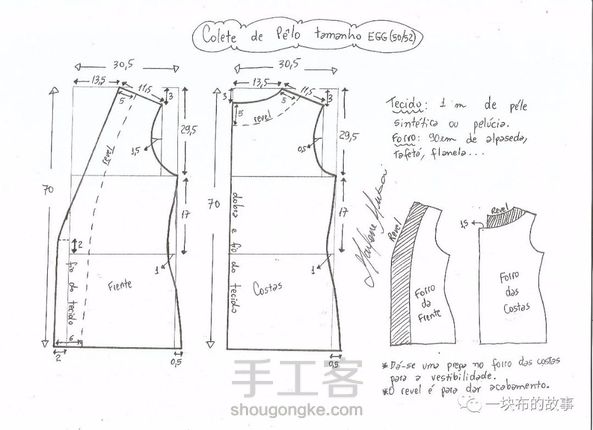 Colete de Pêlo tamanho EGG (50/52)
30,5
13,5
11,5
5
3
revel
1,5
29,5
70
17
2
1
Frente
fio do tecido
6
2
0,5
30,5
13,5
11,5
3
5
5
3
revel
0,5
29,5
70
17
dobra e fio do tecido
1
Costas
0,5
Tecido: 1 m de pele
sintética ou pelúcia.
Forro: 90cm de alpaseda,
tafetá, flanela...
Revel
Forro
da
Frente
Revel
1,5
Forro
das
Costas
*Dá-se uma prega no forro das costas
para a vestibilidade.
*O revel é para dar acabamento.
手工客
shougongke.com
一块布的故事